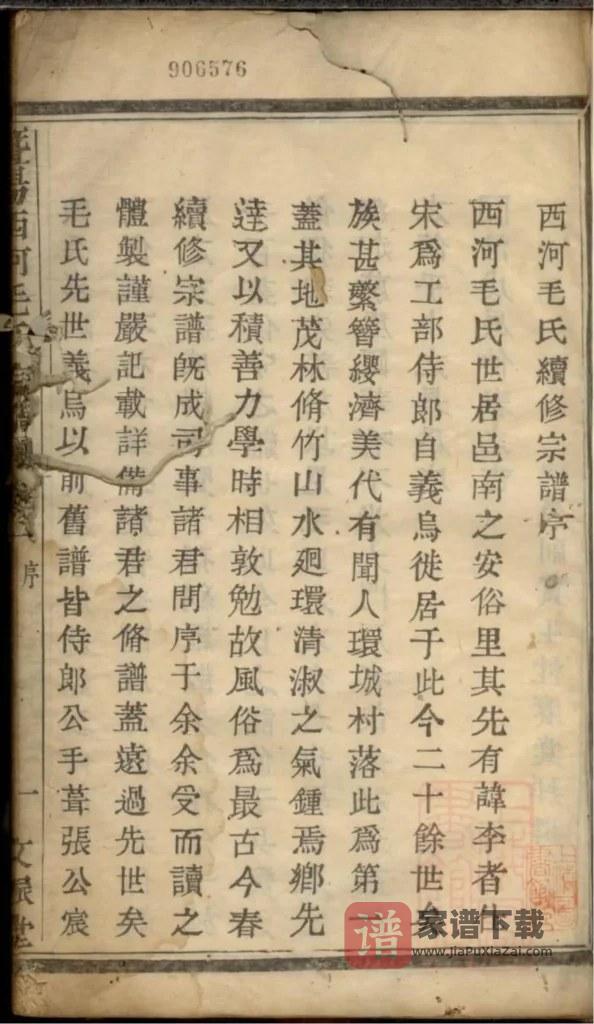 906576
西河毛氏續修宗譜序
西河毛氏世居邑南之安俗里其先有諱李者仕
宋爲工部侍郎自義烏徙居于此今二十餘世矣
族甚繫簪纓濟美代有聞人環城村落此爲第一
蓋其地茂林脩竹山水廻環清淑之氣鍾焉鄉先
逹又以積善力學時相敦勉故風俗爲最古今春
續修宗譜旣成司事諸君問序于余余受而讀之
體製謹嚴記載詳備諸君之脩譜蓋遠過先世矣
毛氏先世義烏以前舊譜皆侍郎公手葺張公宸
暨陽西河毛氏宗譜
序
一
文
堂
谱 家谱下载
www.jiapuxiazai.com